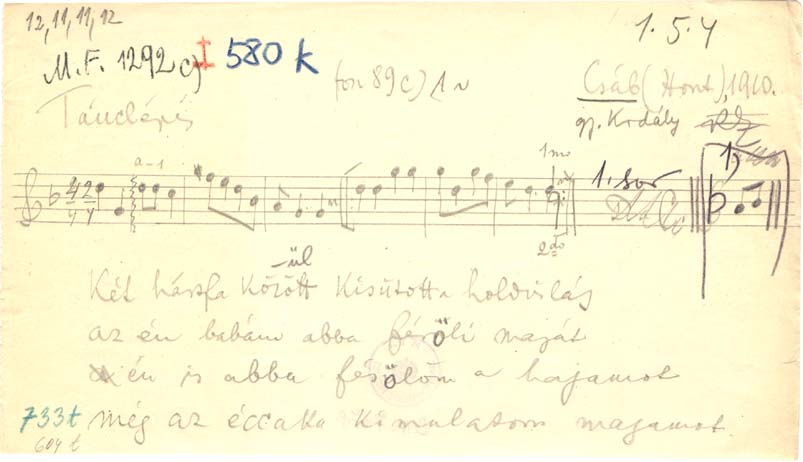 12, 11, 11, 12
1. 5. 4
M. F. 1292 c)
I 580 k
(on 89c) 1 N
Csáb (Hont), 1910.
Tánclépés
gy. Kodály
a-1
1mo
4/4 2/4
1. sor
1)
2do
-ül
Két hársfa között kisütött a holdvilág
az én babám abba fésöli magát
én is abba fésölöm a hajamot
733t még az éccaka kimulatom magamot
604 t